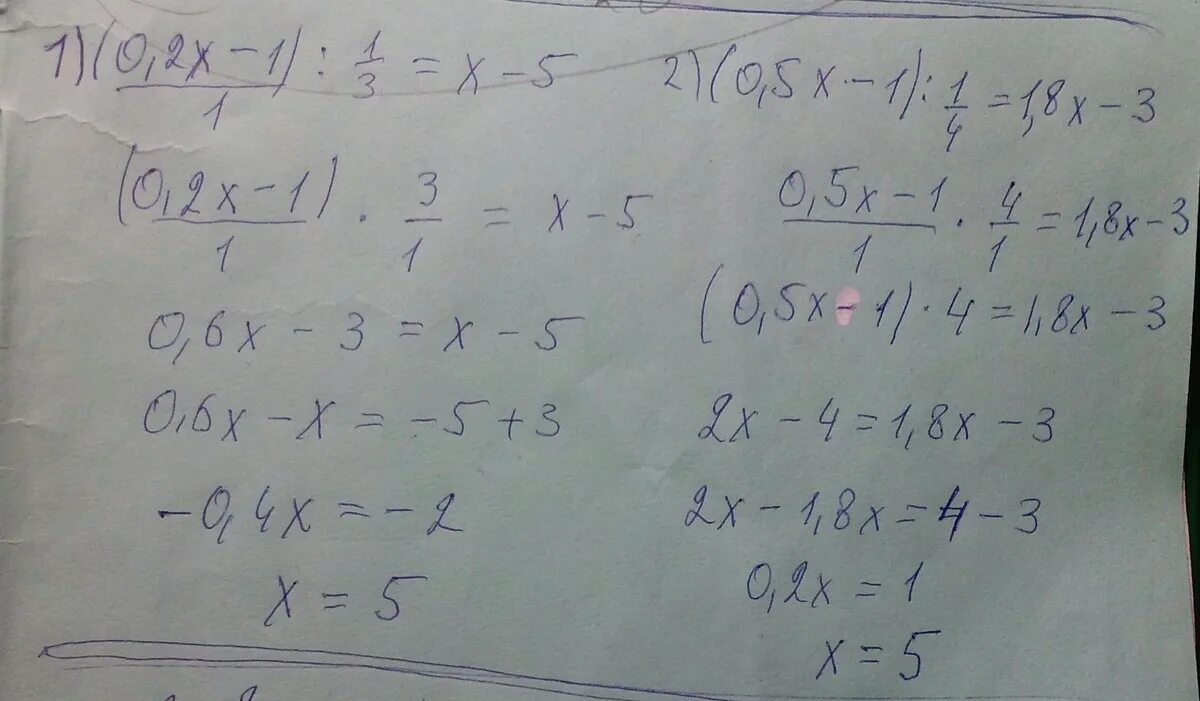 1) (0,2x - 1)/1 : 1/3 = x - 5
(0,2x - 1)/1 · 3/1 = x - 5
0,6x - 3 = x - 5
0,6x - x = -5 + 3
-0,4x = -2
x = 5
2) (0,5x - 1) : 1/4 = 1,8x - 3
0,5x - 1/1 · 4/1 = 1,8x - 3
(0,5x - 1) · 4 = 1,8x - 3
2x - 4 = 1,8x - 3
2x - 1,8x = 4 - 3
0,2x = 1
x = 5